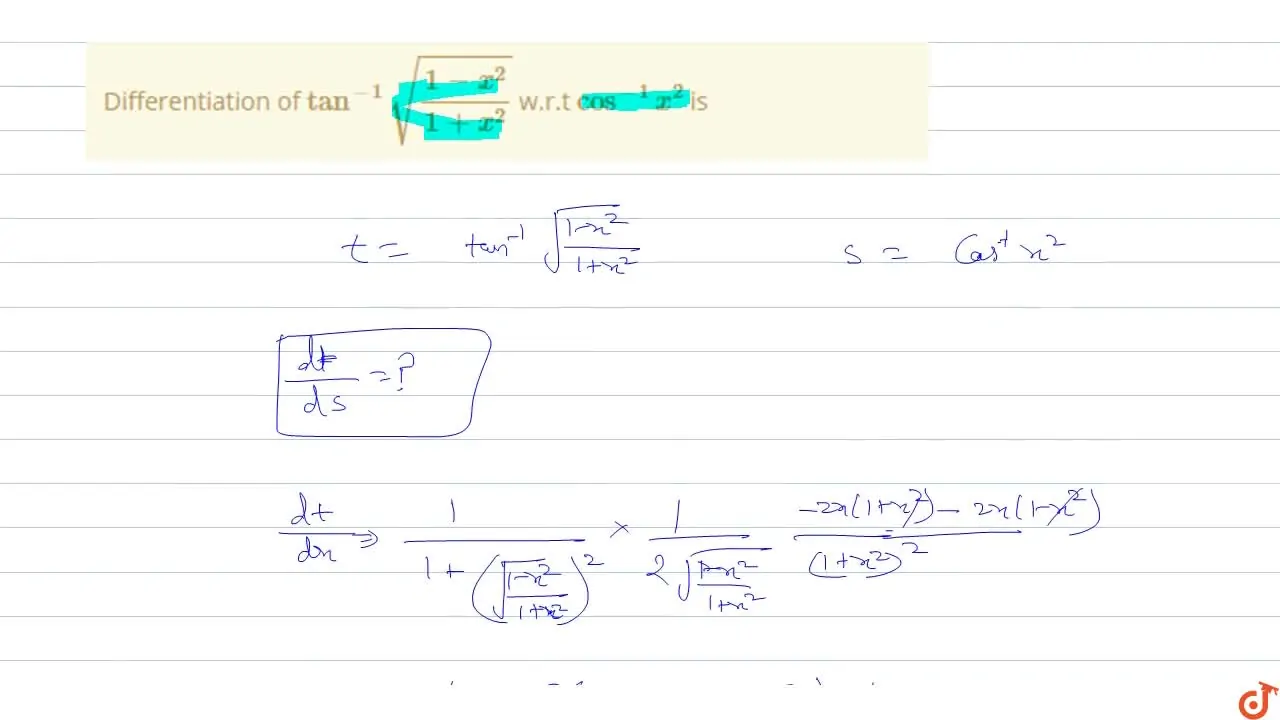 Differentiation of tan⁻¹ √((1 − x²)/(1 + x²)) w.r.t cos⁻¹ x² is
t = tan⁻¹ √((1-x²)/(1+x²)) s = Cos⁻¹ x²
dt/ds = ?
dt/dx ⇒ 1/(1 + (√((1-x²)/(1+x²)))²) × 1/(2√((1-x²)/(1+x²))) (-2x(1+x²) - 2x(1-x²))/(1+x²)²